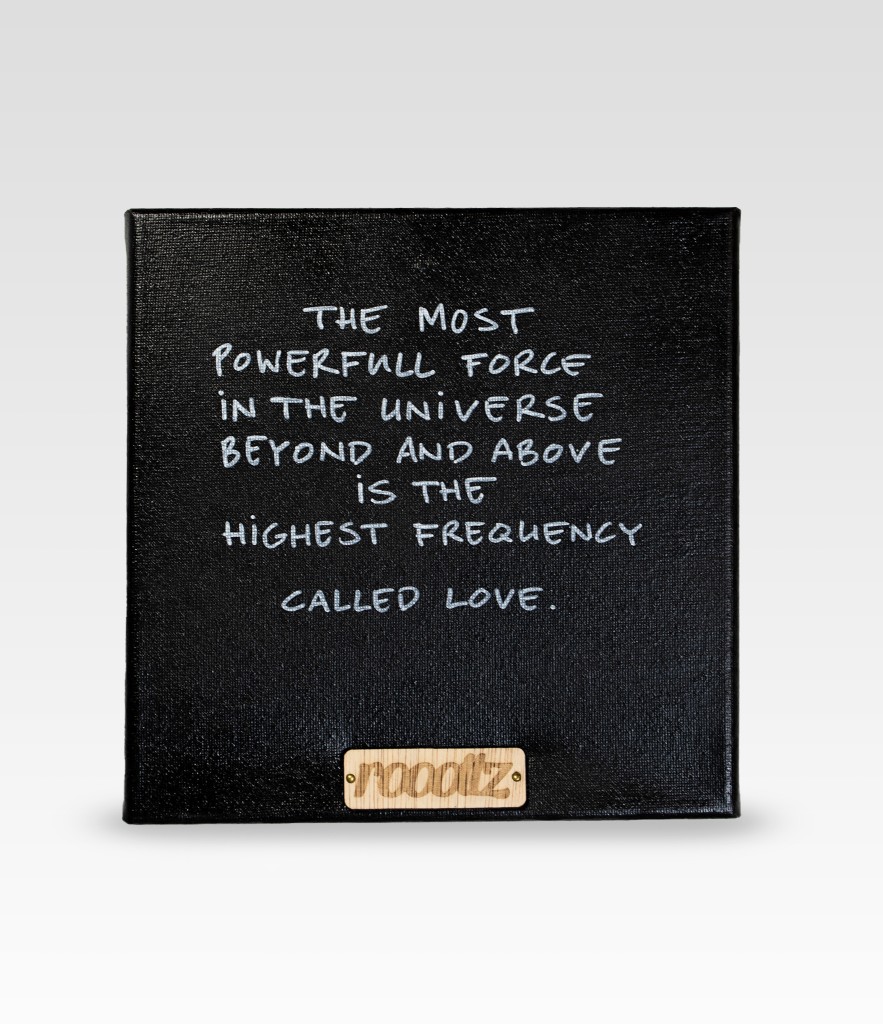 THE MOST
POWERFULL FORCE
iN THE UNiVERSE
BEYOND AND ABOVE
iS THE
HiGHEST FREQUENCY
CALLED LOVE.